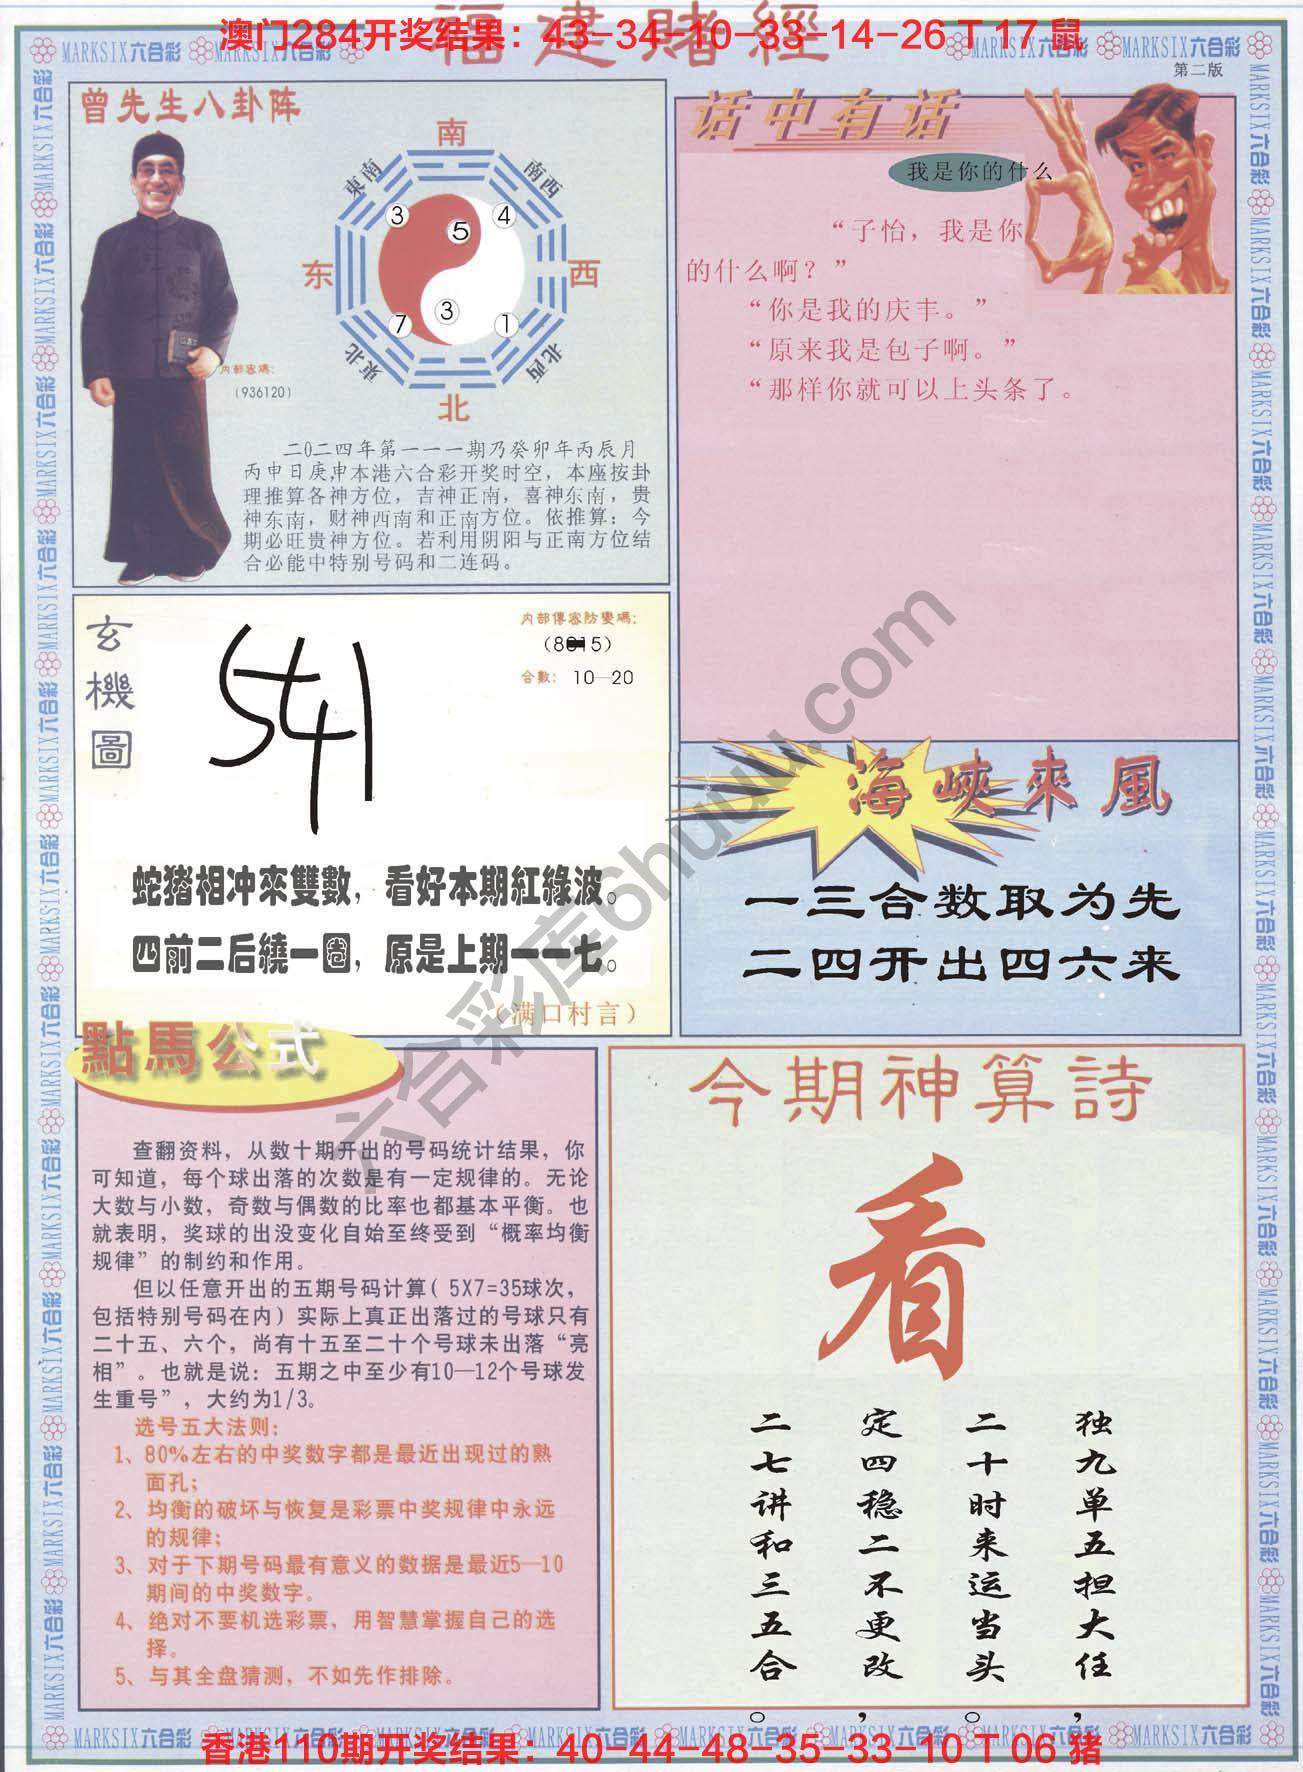 福建赌經
澳门284开奖结果：43-34-10-33-14-26 T 17 鼠
MARKSIX六合彩
第二版
曾先生八卦阵
南
東南
南西
3
4
5
东
西
3
7
1
東北
北西
北
内部密碼：
（936120）
二0二四年第一一一期乃癸卯年丙辰月
丙申日庚申本港六合彩开奖时空，本座按卦
理推算各神方位，吉神正南，喜神东南，贵
神东南，财神西南和正南方位。依推算：今
期必旺贵神方位。若利用阴阳与正南方位结
合必能中特别号码和二连码。
话中有话
我是你的什么
“子怡，我是你
的什么啊？”
“你是我的庆丰。”
“原来我是包子啊。”
“那样你就可以上头条了。
玄機圖
541
内部傳密防變碼：
合數： 10—20
蛇猪相冲來雙數，看好本期紅綠波。
四前二后繞一圈，原是上期一一七。
（满口村言）
海峽來風
一三合数取为先
二四开出四六来
點馬公式
查翻资料，从数十期开出的号码统计结果，你
可知道，每个球出落的次数是有一定规律的。无论
大数与小数，奇数与偶数的比率也都基本平衡。也
就表明，奖球的出没变化自始至终受到“概率均衡
规律”的制约和作用。
但以任意开出的五期号码计算（5X7=35球次，
包括特别号码在内）实际上真正出落过的号球只有
二十五、六个，尚有十五至二十个号球未出落“亮
相”。也就是说：五期之中至少有10—12个号球发
生重号”，大约为1/3。
选号五大法则：
1、80%左右的中奖数字都是最近出现过的熟
面孔；
2、均衡的破坏与恢复是彩票中奖规律中永远
的规律；
3、对于下期号码最有意义的数据是最近5—10
期间的中奖数字。
4、绝对不要机选彩票，用智慧掌握自己的选
择。
5、与其全盘猜测，不如先作排除。
今期神算詩
看
独九单五担大任，
二十时来运当头。
定四稳二不更改，
二七讲和三五合。
六合彩库6huuu.com
香港110期开奖结果：40-44-48-35-33-10 T 06 猪